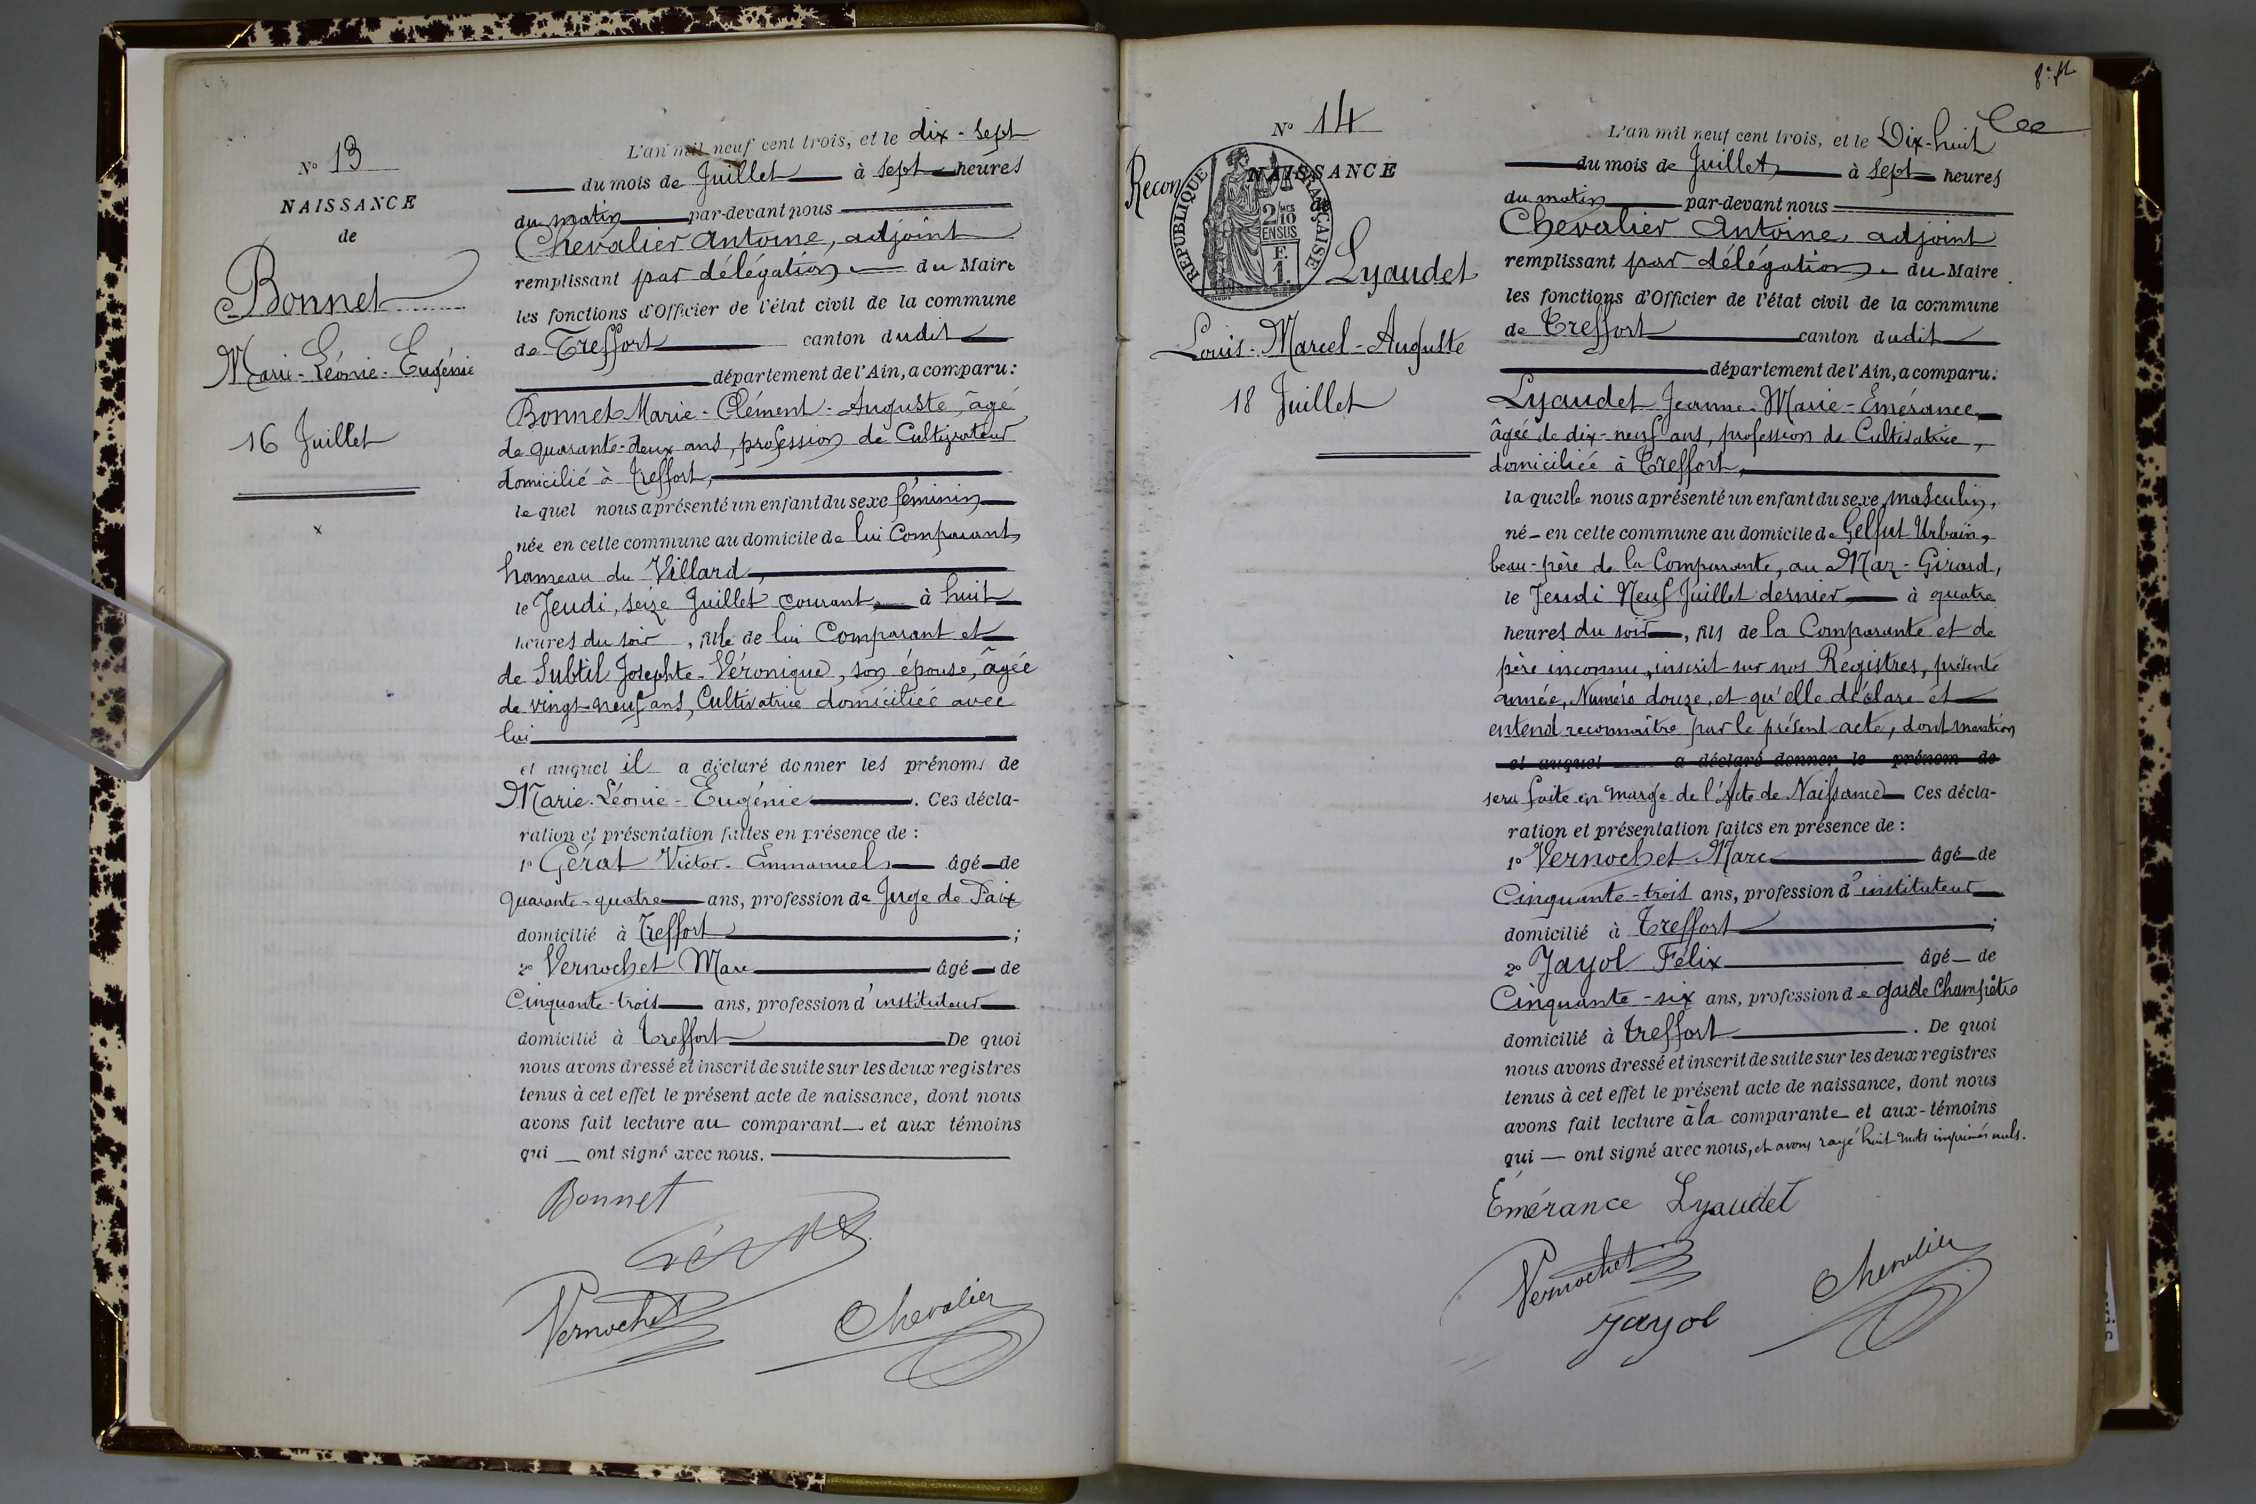 N° 13
NAISSANCE
de
Bonnet
Marie-Léonie-Eugénie
16 Juillet
x
L'an mil neuf cent trois, et le dix-sept
du mois de Juillet à sept heures
du matin par-devant nous
Chevalier Antoine, adjoint
remplissant par délégation du Maire
les fonctions d'Officier de l'état civil de la commune
de Treffort canton dudit
département de l'Ain, a comparu:
Bonnet Marie-Clément-Auguste, âgé
de quarante-deux ans, profession de Cultivateur
domicilié à Treffort,
lequel nous a présenté un enfant du sexe féminin
née en cette commune au domicile de lui Comparant,
hameau du Villard,
le Jeudi, seize Juillet courant, à huit
heures du soir, fille de lui Comparant et
de Subtil Josephte-Véronique, son épouse, âgée
de vingt-neuf ans, Cultivatrice domiciliée avec
lui
et auquel il a déclaré donner les prénoms de
Marie-Léonie-Eugénie. Ces décla-
ration et présentation faites en présence de :
1° Gérat Victor-Emmanuel âgé de
quarante-quatre ans, profession de Juge de Paix
domicilié à Treffort ;
2° Vernochet Marc âgé de
Cinquante-trois ans, profession d'instituteur
domicilié à Treffort De quoi
nous avons dressé et inscrit de suite sur les deux registres
tenus à cet effet le présent acte de naissance, dont nous
avons fait lecture au comparant et aux témoins
qui ont signé avec nous.
Bonnet
Vernochet
Chevalier
N° 14
Recon
NAISSANCE
de
RÉPUBLIQUE FRANÇAISE
2/10 EN SUS
F. 1.
Lyaudet
Louis-Marcel-Auguste
18 Juillet
L'an mil neuf cent trois, et le Dix-huit
du mois de Juillet à sept heures
du matin par-devant nous
Chevalier Antoine, adjoint
remplissant par délégation du Maire
les fonctions d'Officier de l'état civil de la commune
de Treffort canton dudit
département de l'Ain, a comparu:
Lyaudet Jeanne-Marie-Emérance,
âgée de dix-neuf ans, profession de Cultivatrice,
domiciliée à Treffort,
laquelle nous a présenté un enfant du sexe masculin,
né en cette commune au domicile de Gelfut Urbain,
beau-père de la Comparante, au Maz-Girard,
le Jeudi Neuf Juillet dernier à quatre
heures du soir, fils de la Comparante et de
père inconnu, inscrit sur nos Registres, présente
année, Numéro douze, et qu'elle déclare et
entend reconnaître par le présent acte, dont mention
et auquel a déclaré donner le prénom de
sera faite en marge de l'Acte de Naissance Ces décla-
ration et présentation faites en présence de :
1° Vernochet Marc âgé de
Cinquante-trois ans, profession d'instituteur
domicilié à Treffort ;
2° Jayol Félix âgé de
Cinquante-six ans, profession de garde Champêtre
domicilié à Treffort. De quoi
nous avons dressé et inscrit de suite sur les deux registres
tenus à cet effet le présent acte de naissance, dont nous
avons fait lecture à la comparante et aux témoins
qui ont signé avec nous, et avons rayé huit mots imprimés nuls.
Emérance Lyaudet
Vernochet
Chevalier
Jayol